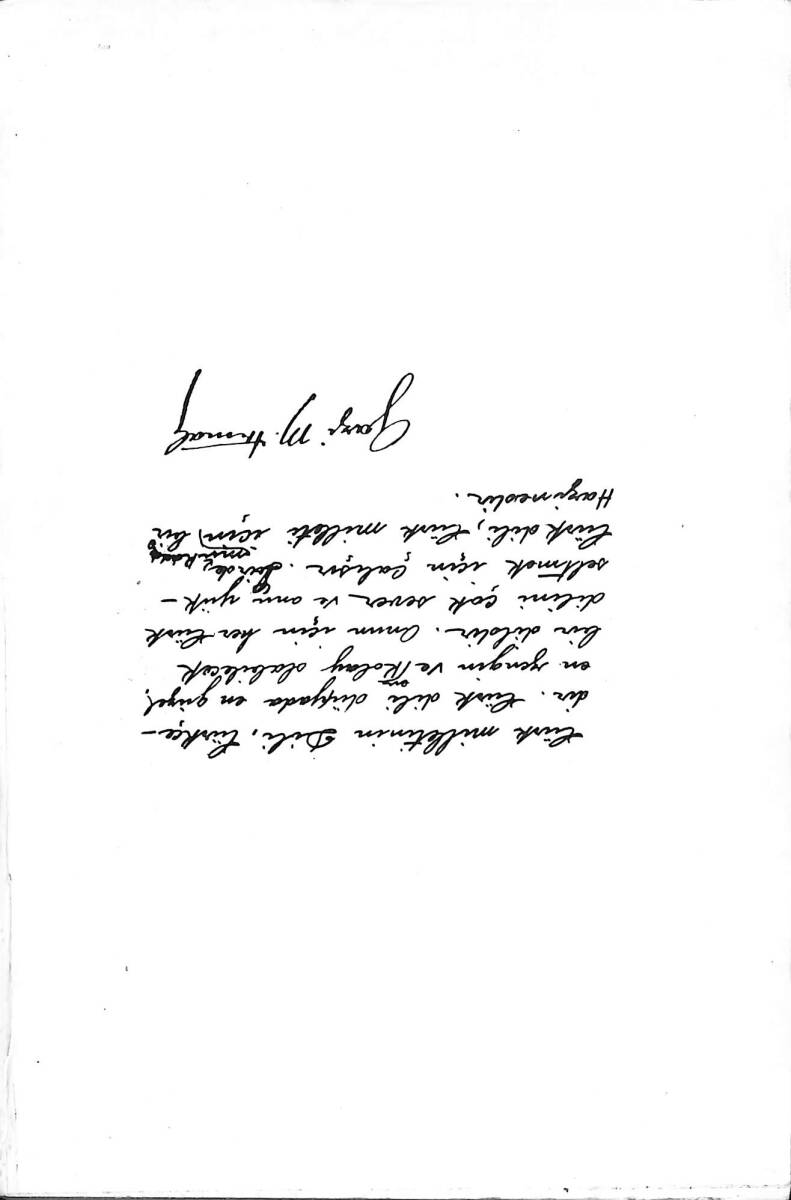 Türk milletinin Dili, Türkçe-
dir. Türk dili dünyada en güzel,
en zengin ve en kolay olabilecek
bir dildir. Onun için her Türk
dilini çok sever ve onu yük-
seltmek için çalışır. Bir de,
Türk dili, Türk milleti için, bir
Hazinedir.
Gazi M. Kemal